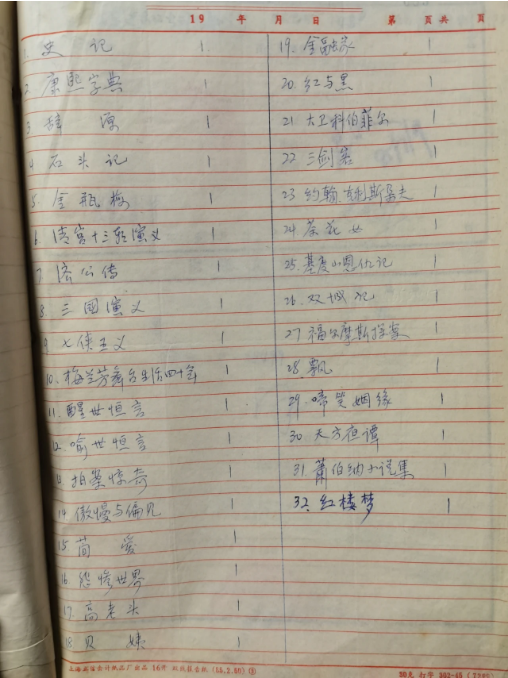 19 年 月 日 第 页共 页
1 史记 1
2 康熙字典 1
3 辞源 1
4 石头记 1
5 金瓶梅 1
6 清宫十三朝演义 1
7 济公传 1
8 三国演义 1
9 七侠五义 1
10、梅兰芳舞台生活四十年 1
11、醒世恒言 1
12、喻世恒言 1
13 拍案惊奇 1
14 傲慢与偏见 1
15 简爱 1
16 悲惨世界 1
17、高老头 1
18 贝姨 1
19、金融家 1
20、红与黑 1
21 大卫科伯菲尔 1
22 三剑客 1
23 约翰克利斯朵夫 1
24 茶花女 1
25、基度山恩仇记 1
26、双城记 1
27、福尔摩斯探案 1
28、飘 1
29、啼笑姻缘 1
30 天方夜谭 1
31 萧伯纳小说集 1
32、红楼梦 1